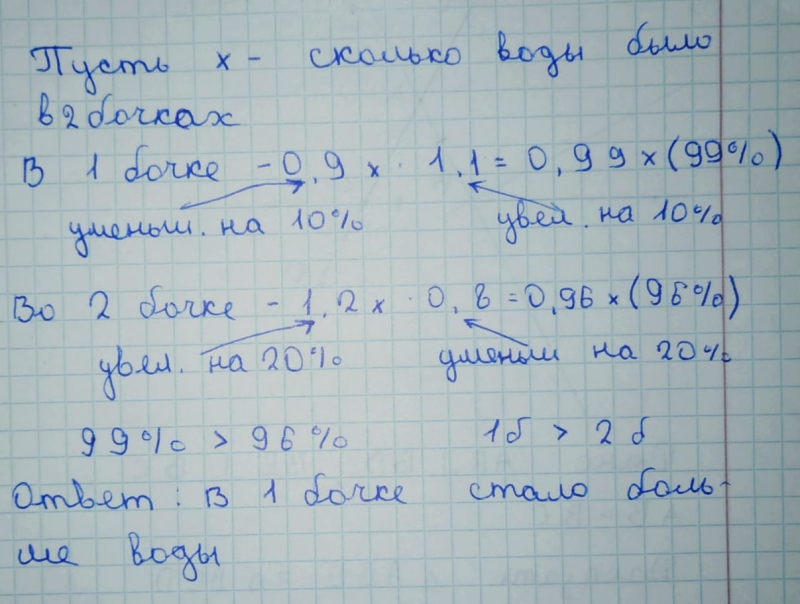 Пусть x - сколько воды было
в 2 бочках
В 1 бочке - 0,9 x · 1,1 = 0,99 x (99%)
уменьш. на 10% увел. на 10%
Во 2 бочке - 1,2 x · 0,8 = 0,96 x (96%)
увел. на 20% уменьш на 20%
99% > 96% 1б > 2 б
Ответ: В 1 бочке стало боль-
ше воды